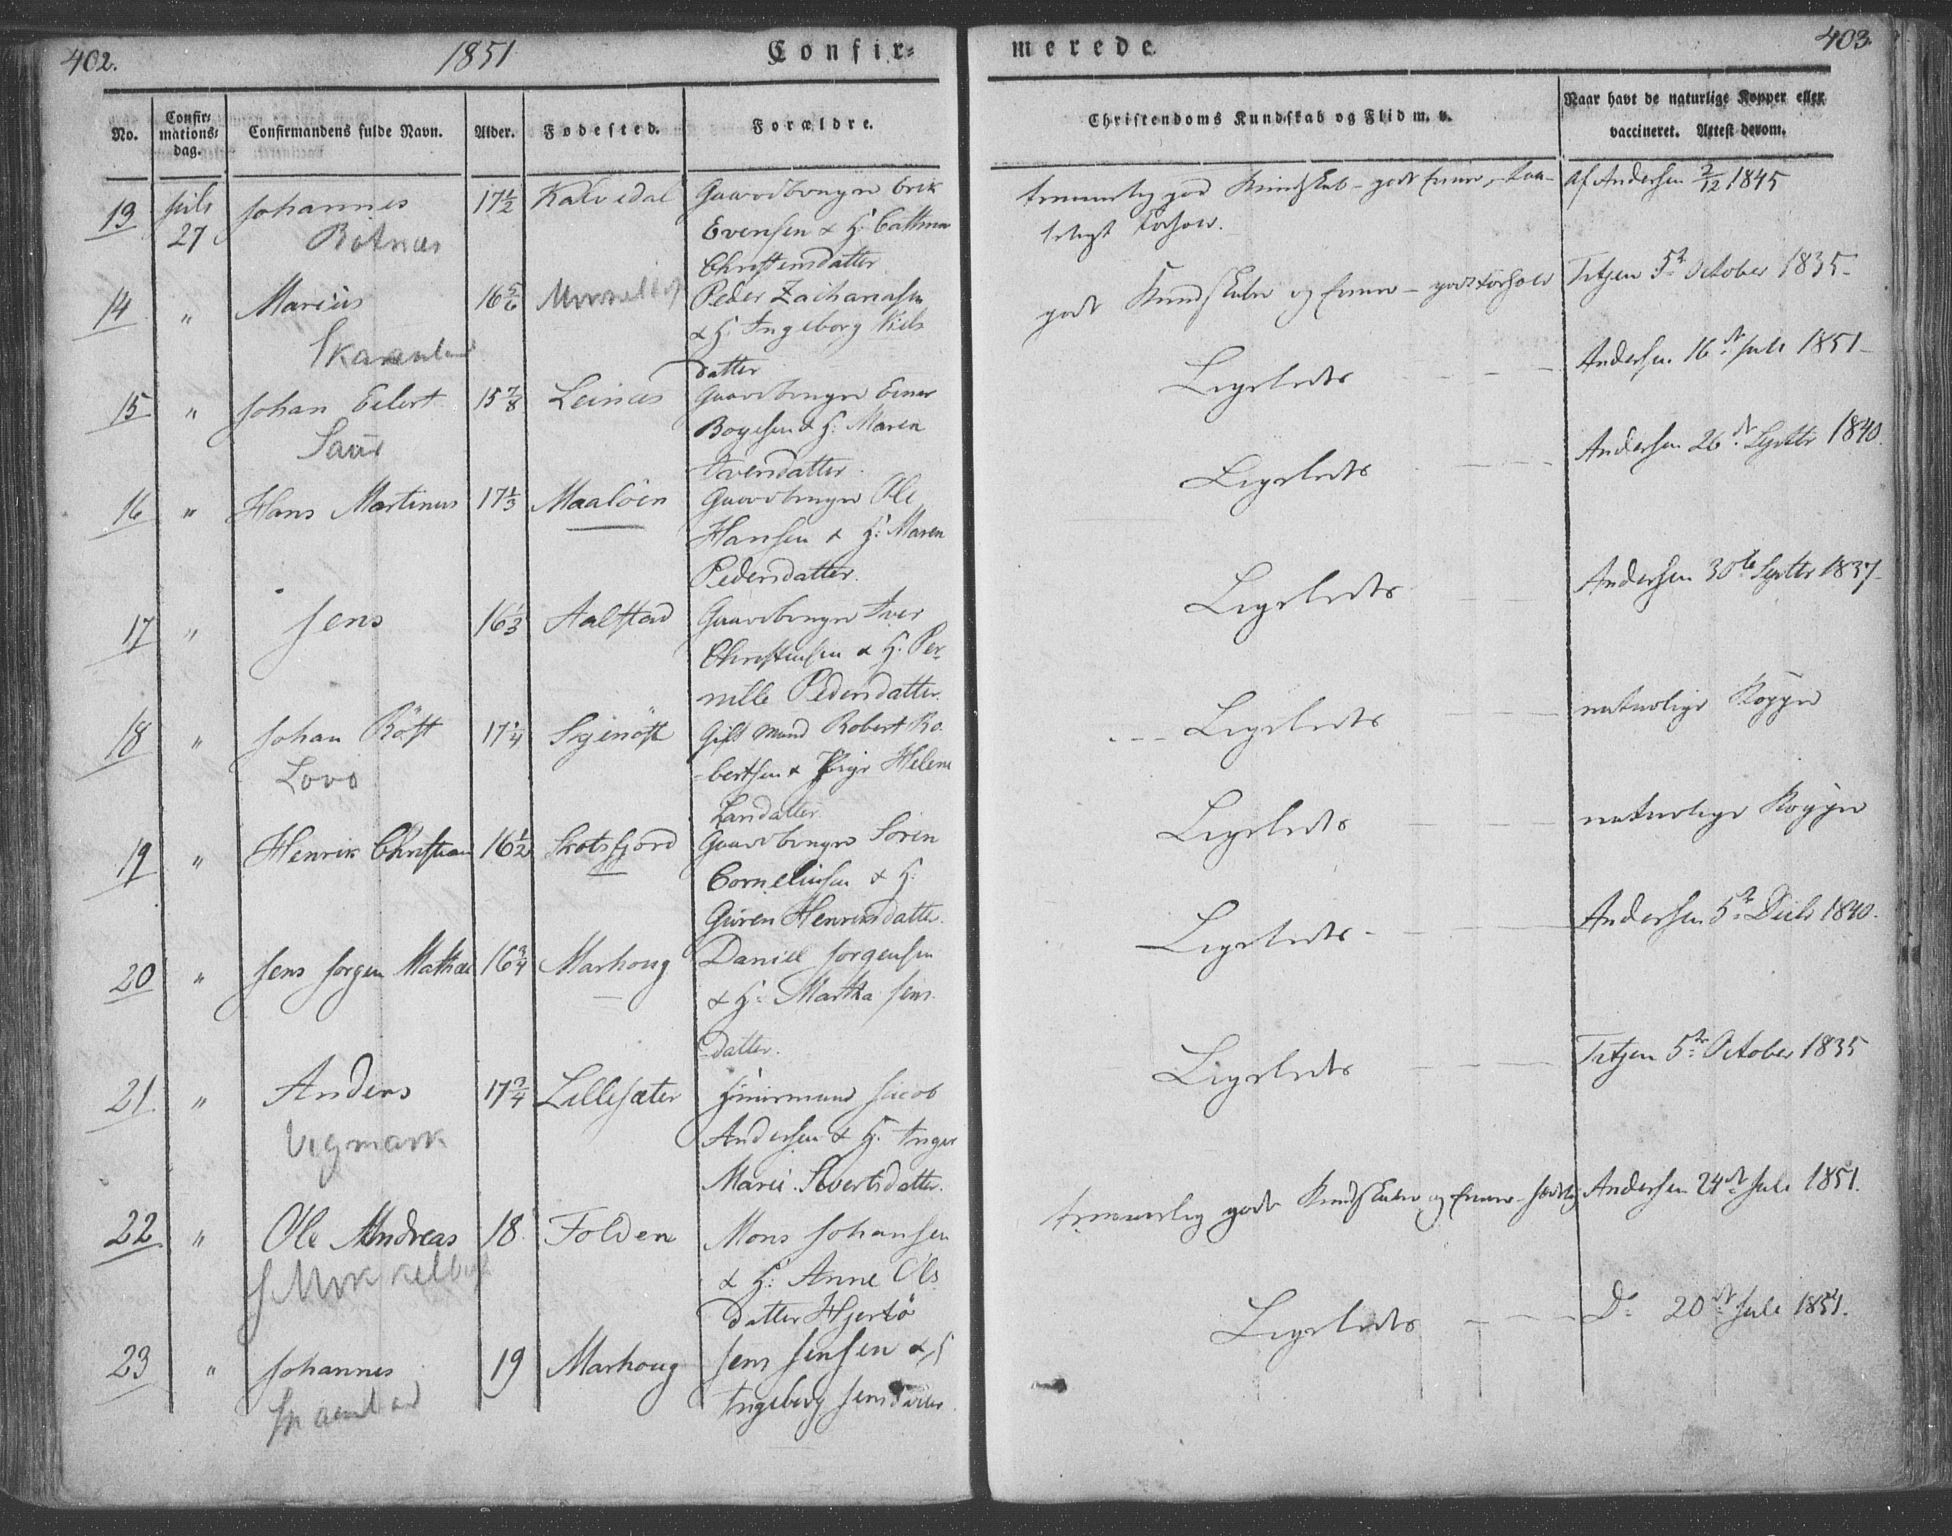 402.
1851
Confir-
merede
403.
No.
Confir-
mations-
dag.
Confirmandens fulde Navn.
Alder.
Fødested.
Forældre.
Christendoms Kundskab og Flid m. v.
Naar havt de naturlige Kopper eller
vaccineret. Attest derom.
13
Juli
27
Johannes
Botnæs
17½
Kalvedal
Gaardbruger Erik
Evensen & H.
Christensdatter
temmelig god Kundskab - godt
Forhold.
af Andersen 2/12 1845
14
"
Marcus
16 5/6
Peder Zachariasen
& H. Ingeborg Niels
datter
godt Kundskaber og - godt Forhold
Tetzen 5te October 1835
15
"
Johan Eilert
15 7/8
Leinæs
Gaardbruger Einer
Boyesen & H. Maren
Iversdatter.
Ligeledes
Andersen 16de Juli 1851
16
"
Hans Martinus
17⅓
Maalöen
Gaardbruger Ole
Hansen & H: Maren
Pedersdatter.
Ligeledes
Andersen 26de Septbr 1840.
17
"
Jens
16⅓
Aalstad
Gaardbruger Iver
Christensen & H. Per-
nille Pedersdatter.
Ligeledes
Andersen 30te Septbr 1837
18
"
Johan Röst
Lovö
17¼
Gift Mand Robert Ro-
bertsen & Pige Helene
Larsdatter
Ligeledes
naturlige Kopper
19
"
Henrik Christian
16½
Skotsfjord
Gaardbruger Sören
Corneliusen & H:
Guren Henriksdatter.
Ligeledes
naturlige Kopper
20
"
Jens Jörgen Mathias
16¾
Marhoug
Daniel Jörgensen
& H: Martha Jens
datter.
Ligeledes
Andersen 5te Decbr 1840.
21
"
Anders
Vegmark
17¾
Lillesæter
Huusmand Jacob
Andersen & H. Inger
Marie Sivertsdatter.
Ligeledes
Tetzen 5te October 1835
22
"
Ole Andreas
18
Folden
Mons Johansen
& H: Anne Ols
datter Hjertö
temmelig godt Kundskaber og
Andersen 24de Juli 1851.
23
"
Johannes
19
Marhoug
Jens Jensen & H
Ingeborg Jensdatter.
Ligeledes
Do 20de Juli 1851.